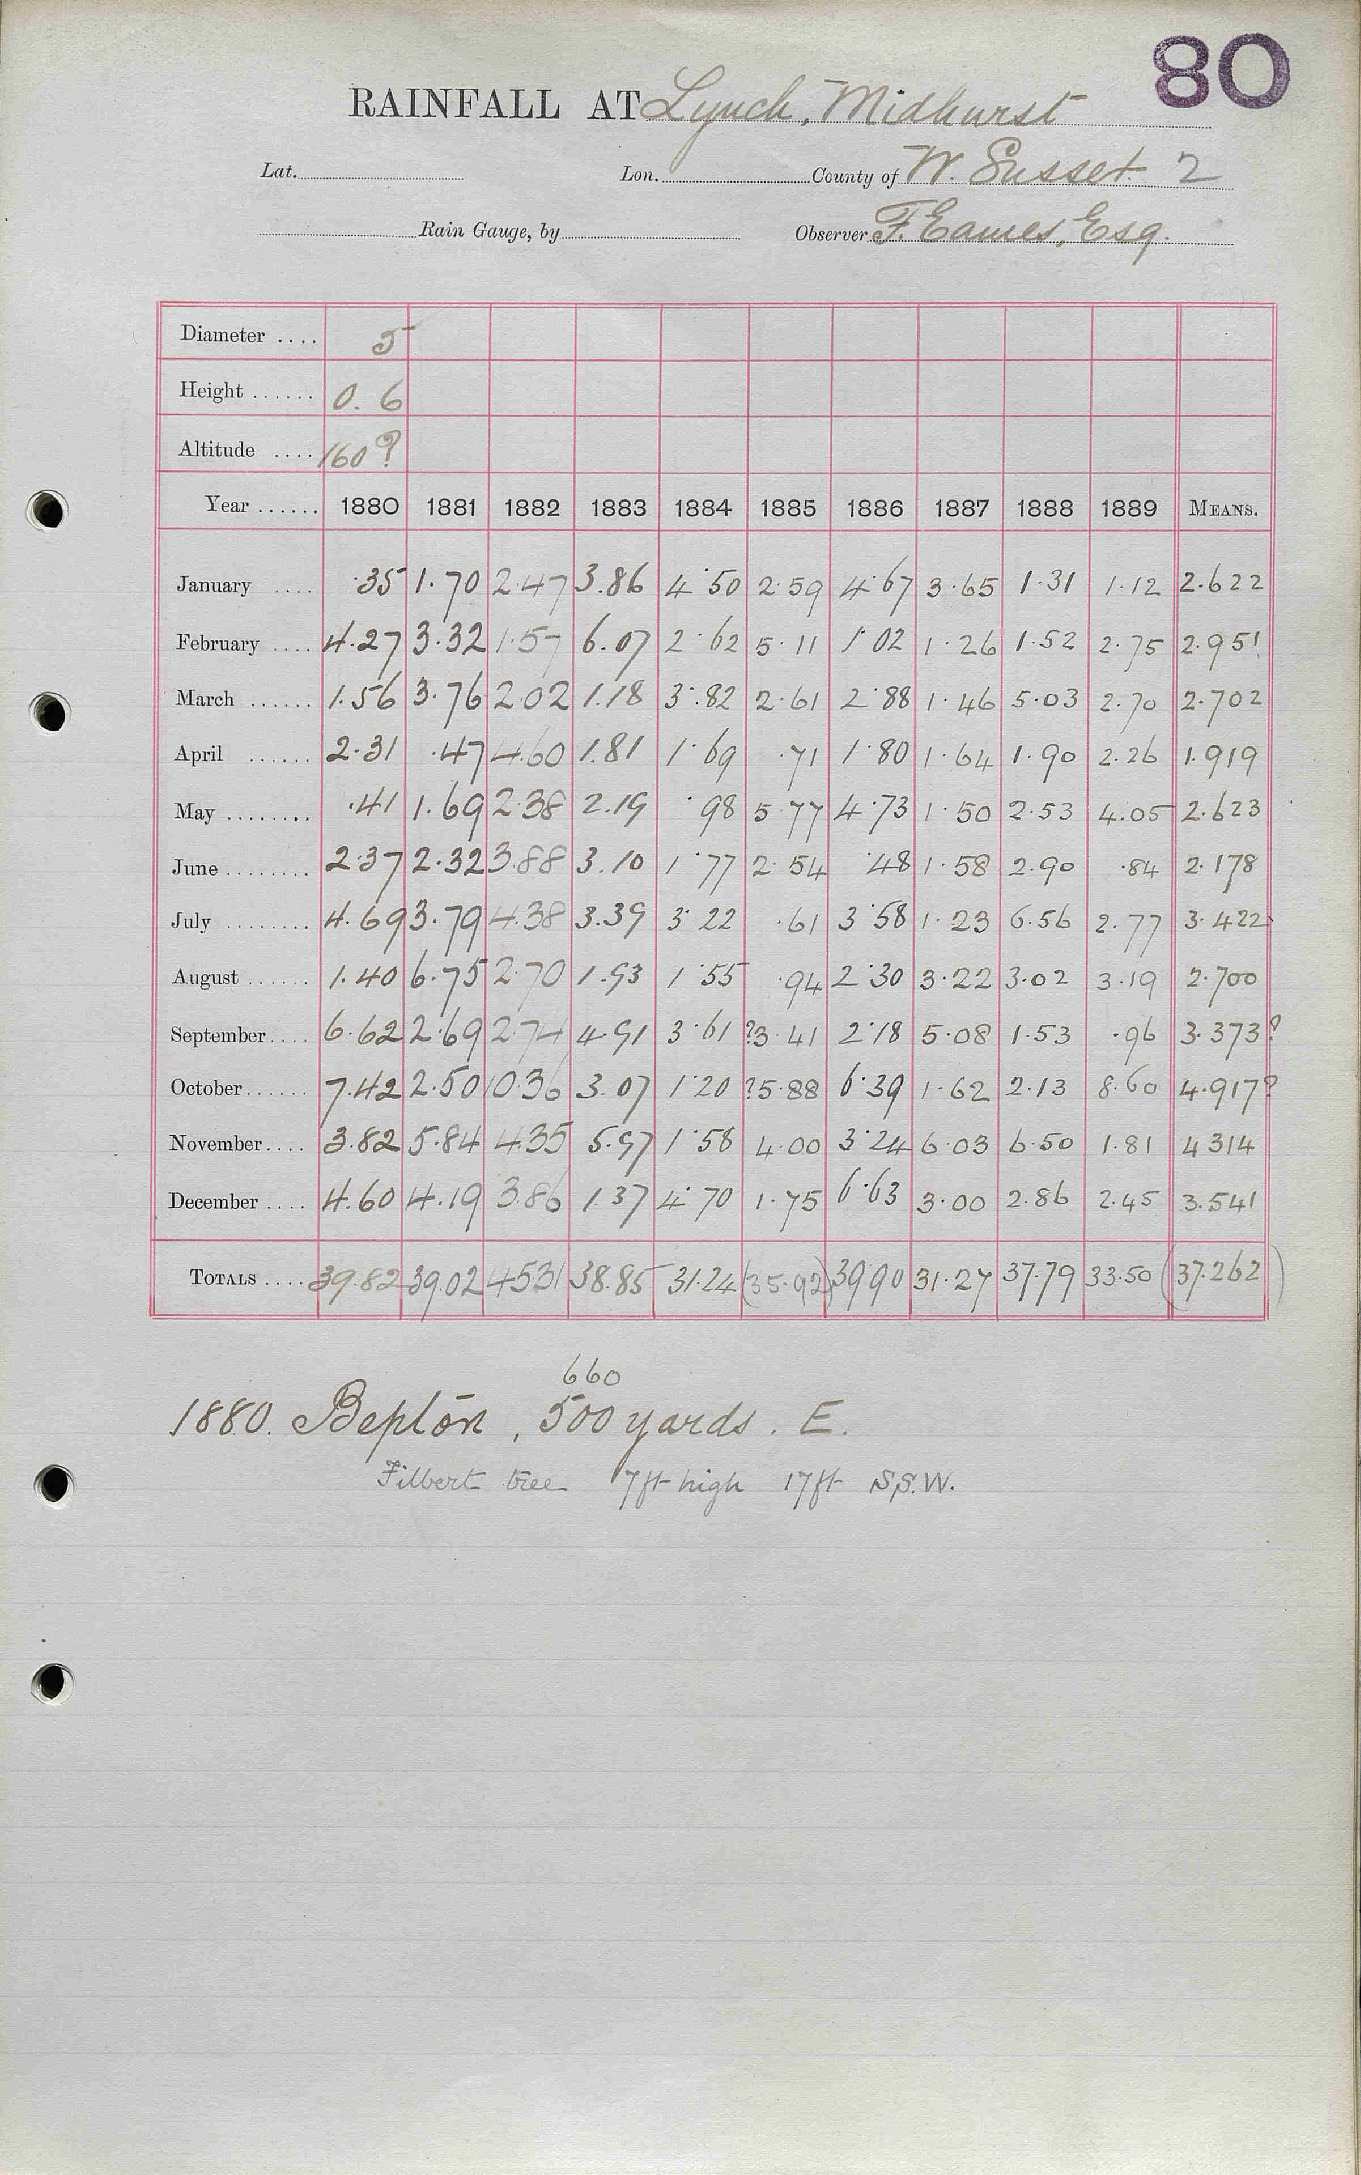 80
RAINFALL AT Lynch, Midhurst
Lat. Lon. County of W. Sussex 2
Rain Gauge, by Observer F. Eames, Esq.
Diameter .... 5
Height ...... 0. 6
Altitude .... 160?
Year ...... 1880 1881 1882 1883 1884 1885 1886 1887 1888 1889 MEANS.
January .... .35 1.70 2.47 3.86 4.50 2.59 4.67 3.65 1.31 1.12 2.622
February .... 4.27 3.32 1.57 6.07 2.62 5.11 1.02 1.26 1.52 2.75 2.951
March ...... 1.56 3.76 2.02 1.18 3.82 2.61 2.88 1.46 5.03 2.70 2.702
April ...... 2.31 .47 4.60 1.81 1.69 .71 1.80 1.64 1.90 2.26 1.919
May ........ .41 1.69 2.38 2.19 .98 5.77 4.73 1.50 2.53 4.05 2.623
June ........ 2.37 2.32 3.88 3.10 1.77 2.54 .48 1.58 2.90 .84 2.178
July ........ 4.69 3.79 4.38 3.39 3.22 .61 3.58 1.23 6.56 2.77 3.422
August ...... 1.40 6.75 2.70 1.93 1.55 .94 2.30 3.22 3.02 3.19 2.700
September.... 6.62 2.69 2.74 4.91 3.61 ?3.41 2.18 5.08 1.53 .96 3.373?
October...... 7.42 2.50 10.36 3.07 1.20 ?5.88 6.39 1.62 2.13 8.60 4.917?
November.... 3.82 5.84 4.35 5.97 1.58 4.00 3.24 6.03 6.50 1.81 4 314
December .... 4.60 4.19 3.86 1.37 4.70 1.75 6.63 3.00 2.86 2.45 3.541
TOTALS .... 39.82 39.02 45.31 38.85 31.24 (35.92) 39.90 31.27 37.79 33.50 (37.262)
660
1880. Bepton, 500 yards. E.
Filbert tree 7ft high 17ft S.S.W.